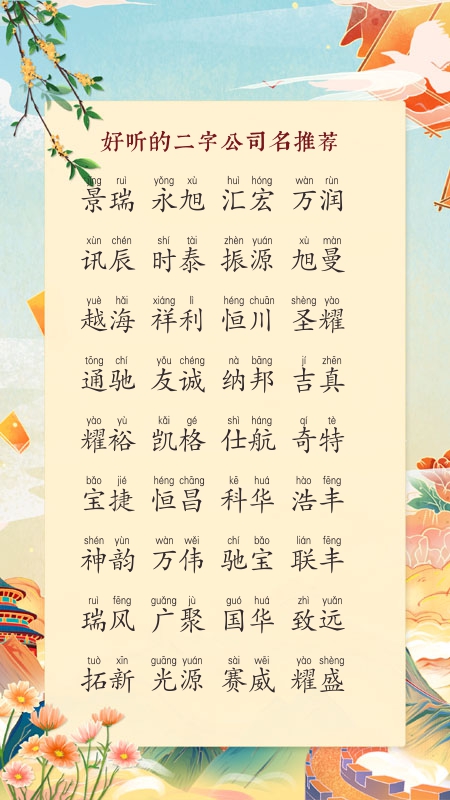 好听的二字公司名推荐
jǐng ruì yǒng xù huì hóng wàn rùn
景瑞 永旭 汇宏 万润
xùn chén shí tài zhèn yuán xù màn
讯辰 时泰 振源 旭曼
yuè hǎi xiáng lì héng chuān shèng yào
越海 祥利 恒川 圣耀
tōng chí yǒu chéng nà bāng jí zhēn
通驰 友诚 纳邦 吉真
yào yù kǎi gé shì háng qí tè
耀裕 凯格 仕航 奇特
bǎo jié héng chāng kē huá hào fēng
宝捷 恒昌 科华 浩丰
shén yùn wàn wěi chí bǎo lián fēng
神韵 万伟 驰宝 联丰
ruì fēng guǎng jù guó huá zhì yuǎn
瑞风 广聚 国华 致远
tuò xīn guāng yuán sài wēi yào shèng
拓新 光源 赛威 耀盛